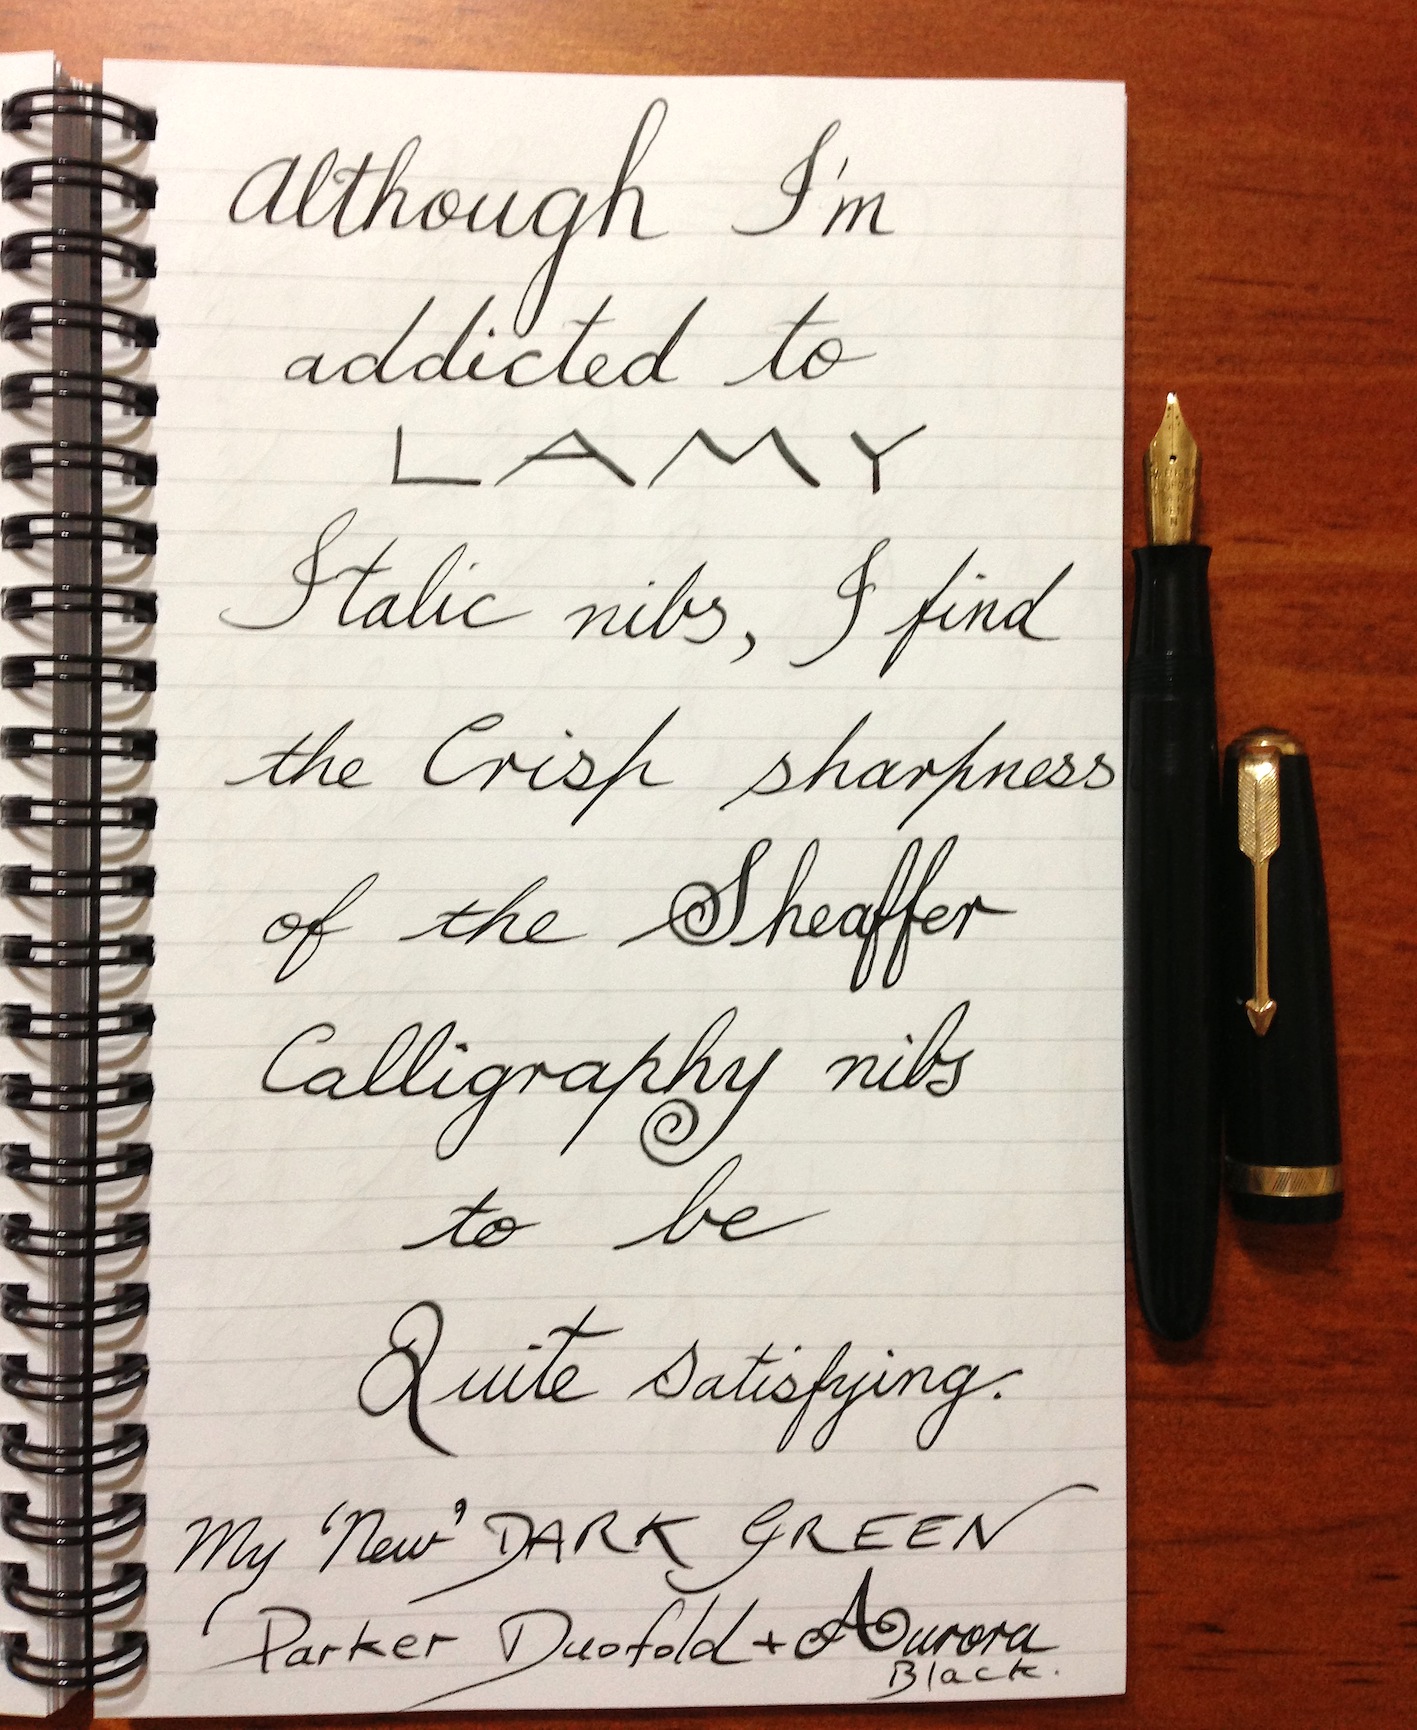 Although I'm
addicted to
LAMY
Italic nibs, I find
the Crisp sharpness
of the Sheaffer
Calligraphy nibs
to be
Quite satisfying.
My 'New' DARK GREEN
Parker Duofold + Aurora
Black.